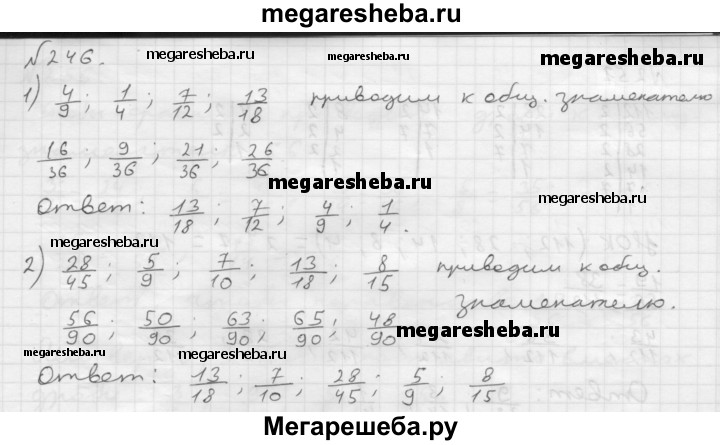 megaresheba.ru
№246. megaresheba.ru megaresheba.ru
1) 4/9; 1/4; 7/12; 13/18 приводим к общ. знаменателю
16/36; 9/36; 21/36; 26/36. megaresheba.ru
Ответ: 13/18; 7/12; 4/9; 1/4.
megaresheba.ru megaresheba.ru
2) 28/45; 5/9; 7/10; 13/18; 8/15 приводим к общ.
знаменателю.
56/90; 50/90; 63/90; 65/90; 48/90 megaresheba.ru
megaresheba.ru megaresheba.ru
Ответ: 13/18; 7/10; 28/45; 5/9; 8/15
Мегарешеба.ру